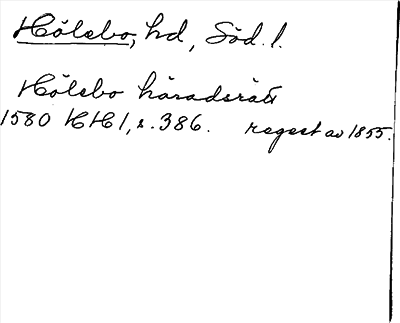 Hölebo, hd, Söd. l.
Hölebo häradsrätt
1580 HH 1, s. 386. regest av 1855.